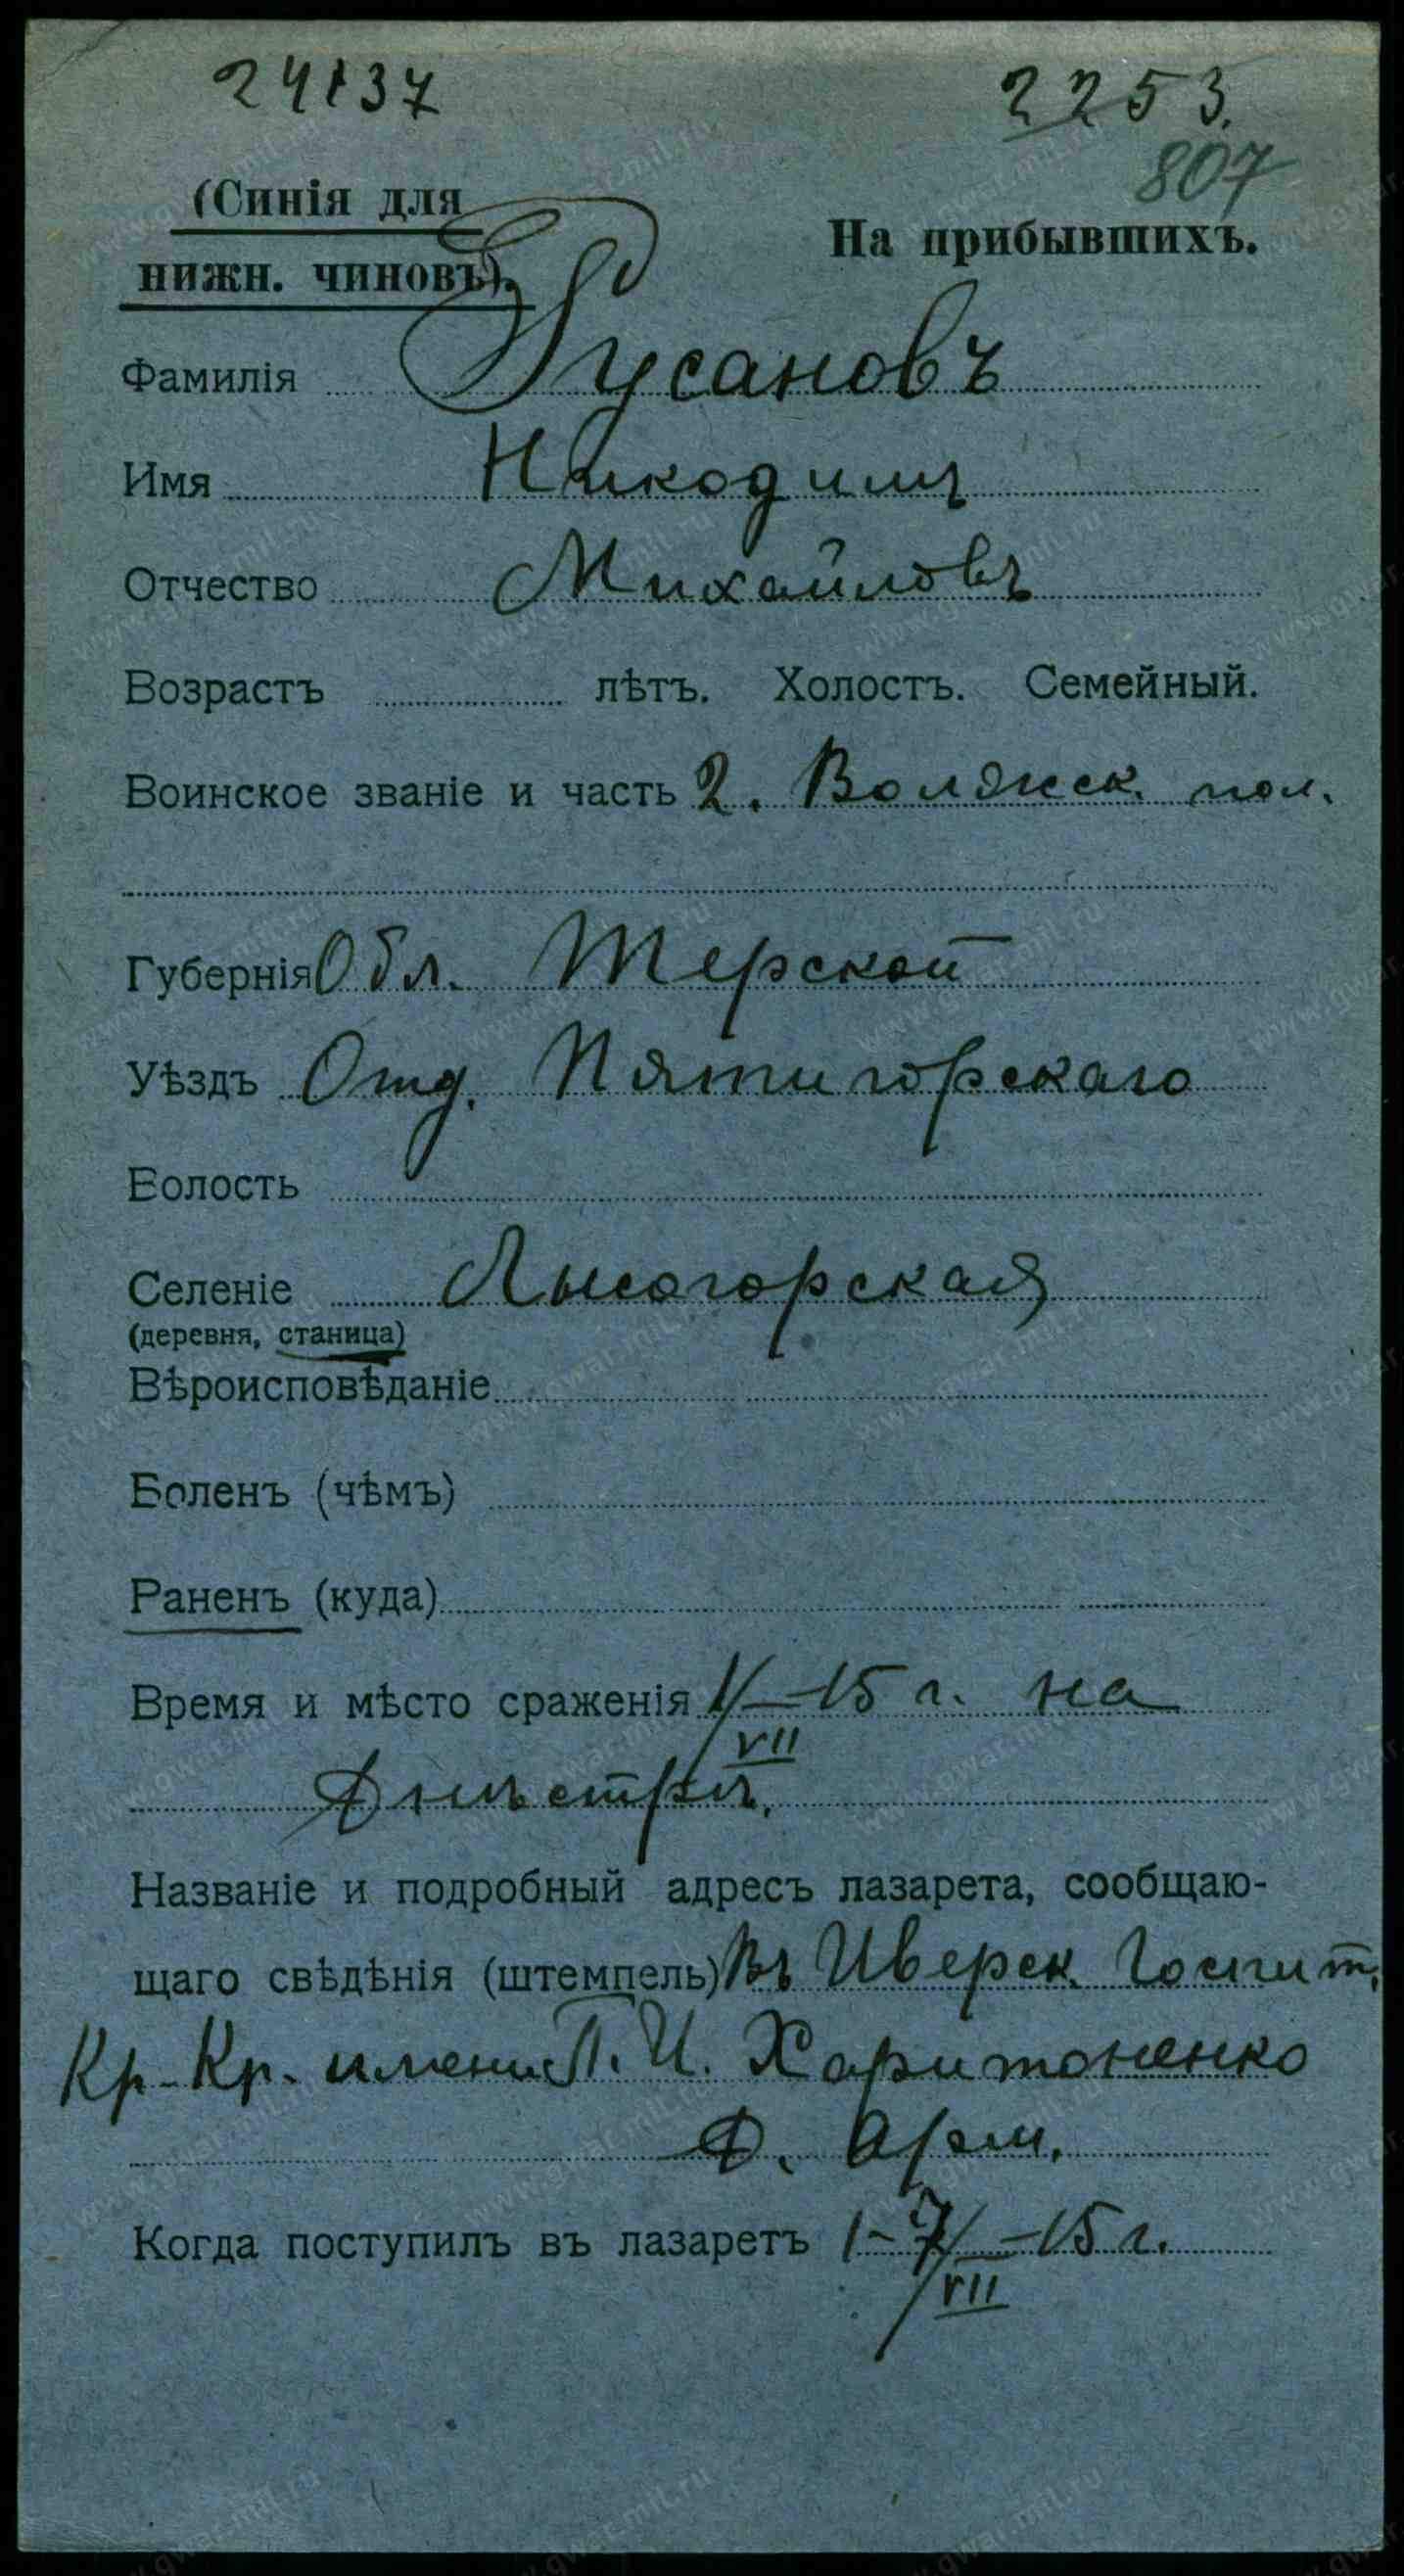 24137 2253.
807
(Синія для
нижн. чиновъ).
На прибывшихъ.
Фамилія Русановъ
Имя Никодимъ
Отчество Михайловъ
Возрастъ лѣтъ. Холостъ. Семейный.
Воинское званіе и часть 2. Волжск. пол.
Губернія Обл. Терской
Уѣздъ Отд. Пятигорскаго
Волость
Селеніе Лысогорская
(деревня, станица)
Вѣроисповѣданіе
Боленъ (чѣмъ)
Раненъ (куда)
Время и мѣсто сраженія 1/VII-15 г. на
Днѣстрѣ.
Названіе и подробный адресъ лазарета, сообщаю-
щаго свѣдѣнія (штемпель) Въ Иверск. Госпит.
Кр. Кр. имени П. И. Харитоненко
Д. Арм.
Когда поступилъ въ лазаретъ 1-7/VII-15 г.
www.gwar.mil.ru